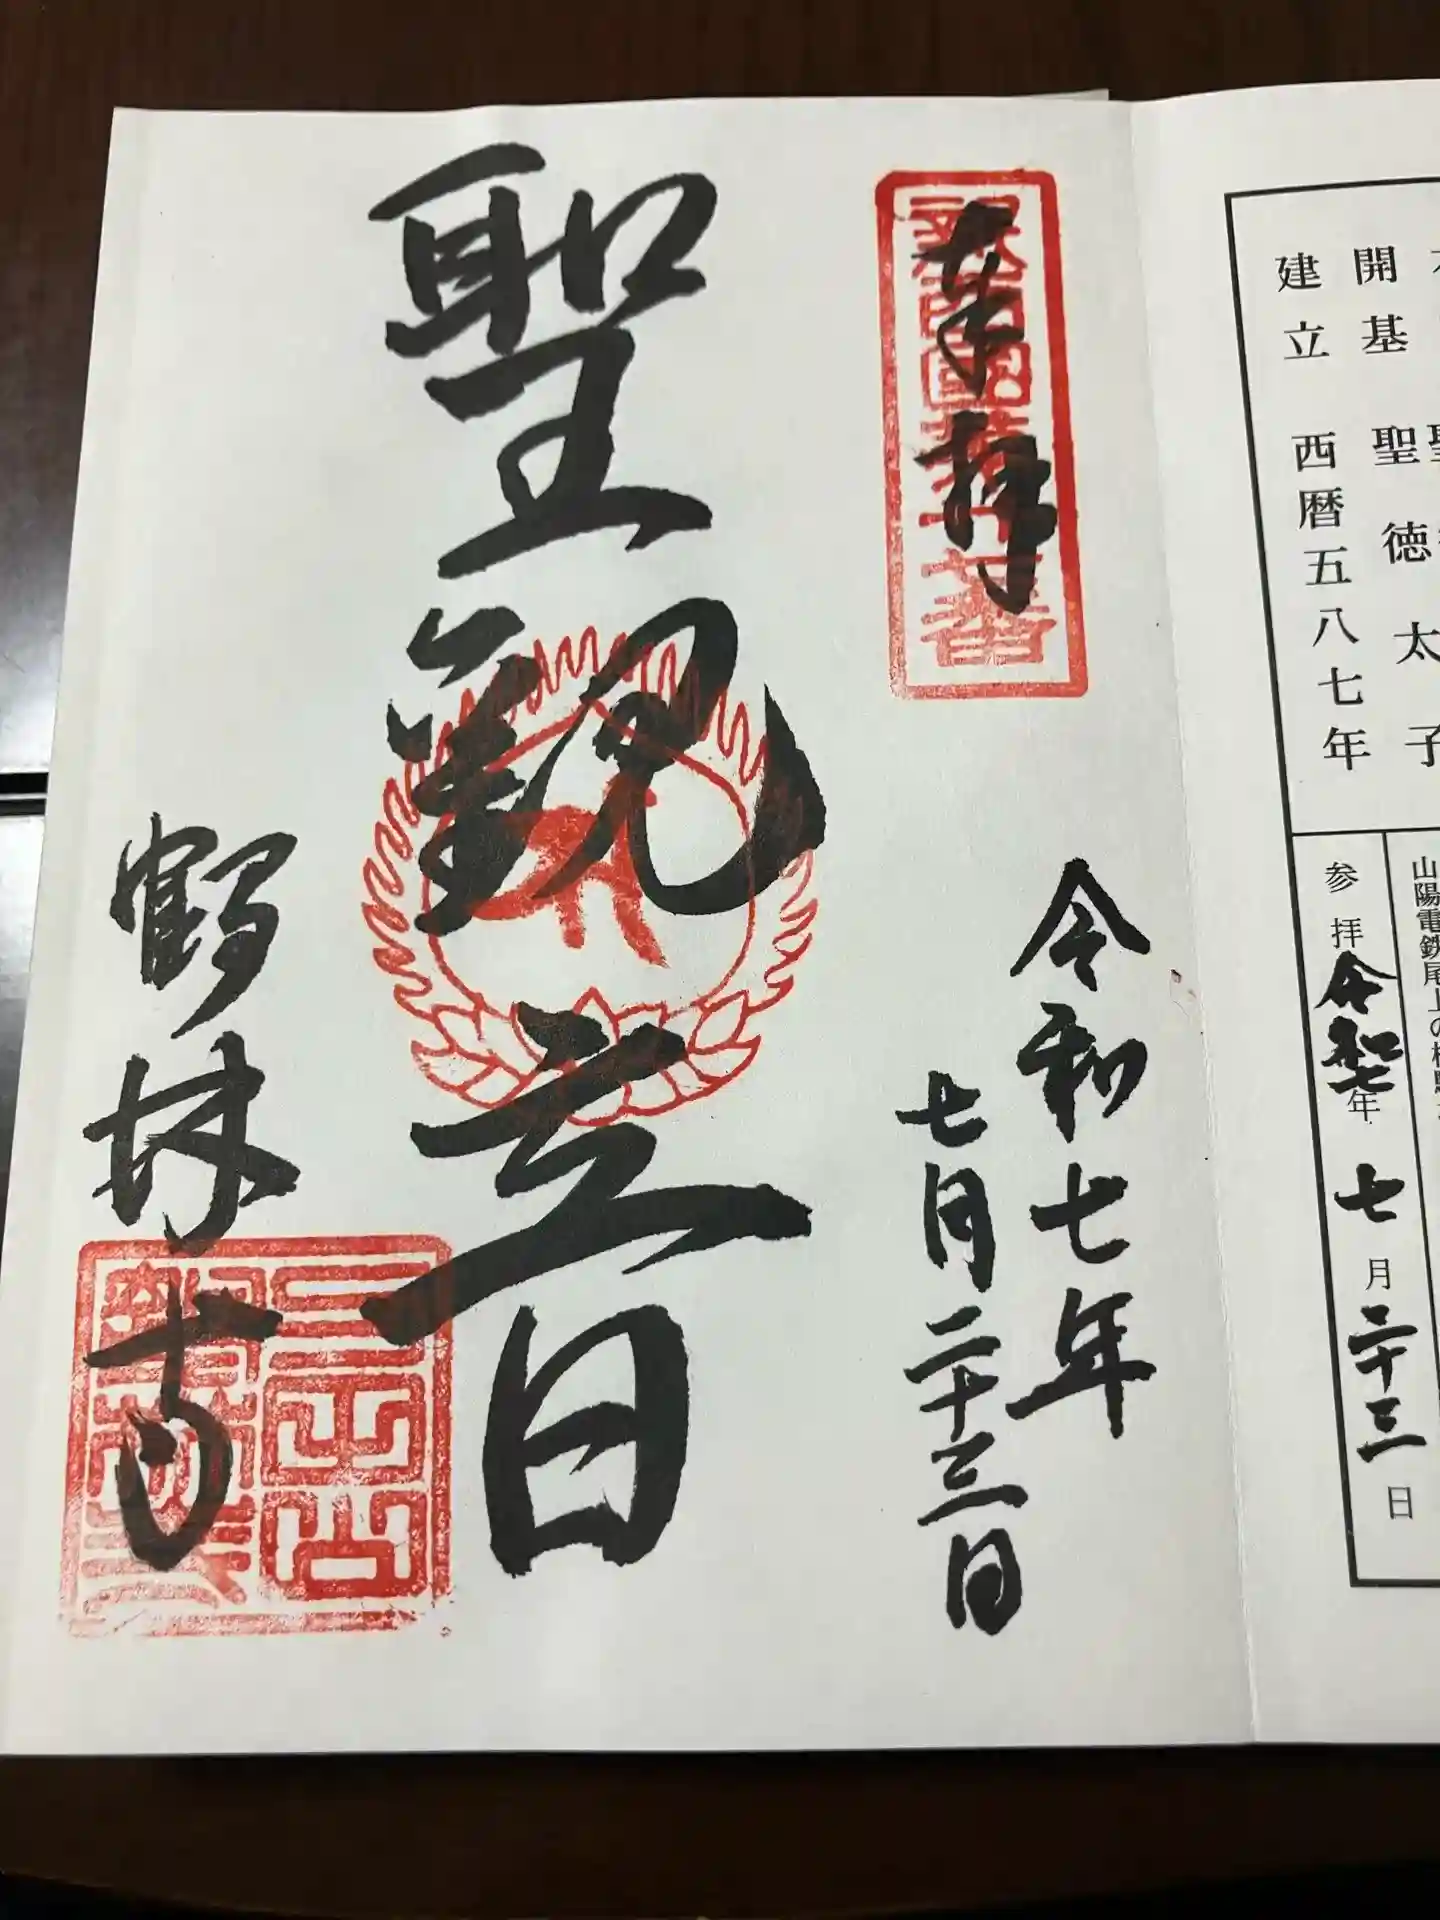 開基 聖徳太子
建立 西暦五八七年
山陽電鉄尾上の松駅
参拝令和七年七月二十三日
奉拝
令和七年
七月二十三日
聖観音
鶴林寺